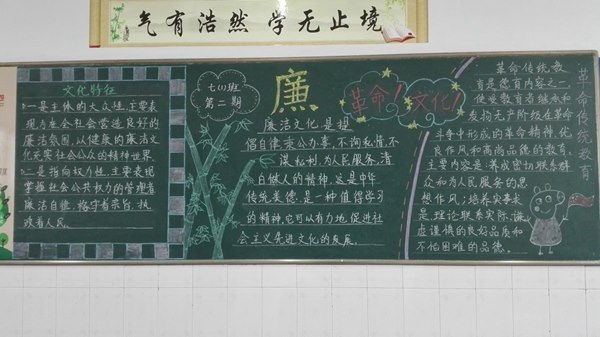 气有浩然 学无止境
文化特征
一是主体的大众性,主要表
现为在全社会营造良好的
廉洁氛围,以健康的廉洁文
化充实社会公众的精神世界
二是指向权力性,主要表现
掌握社会公共权力的管理者
廉洁自律,恪守者宗旨,执
政者人民。
七(1)班
第二期
廉
廉洁文化是提
倡自律,秉公办事,不徇私情,不
谋私利,为人民服务,清
白做人的精神,这是中华
传统美德,是一种值得学习
的精神,它可以有力地,促进社
会主义先进文化的发展。
革命!文化!
革命传统教
育是德育内容之一,
使受教育者继承和
发扬无产阶级在革命
斗争中形成的革命精神,优
良作风和高尚品德的教育。
主要内容是:养成密切联系群
众和为人民服务的思
想作风;培养实事求
是理论联系实际,谦
虚谨慎的良好品质和
不怕困难的品德。
革命传统教育